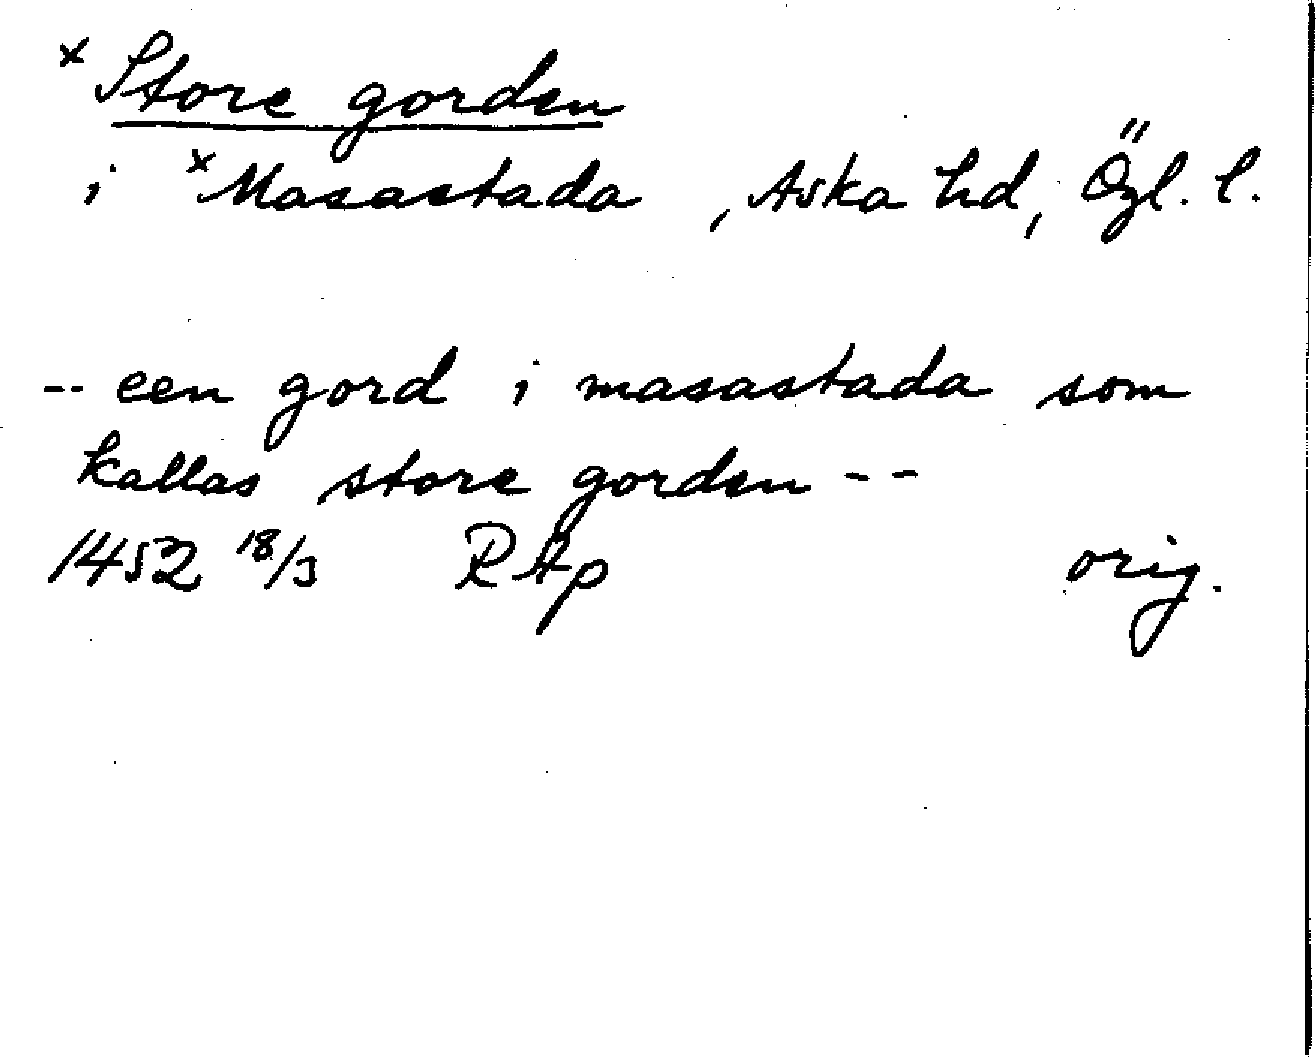 x Store gorden
i x Masastada , Aska hd, Ögl. l.
-- een gord i masastada som
kallas store gorden --
1452 18/3 RAp orig.